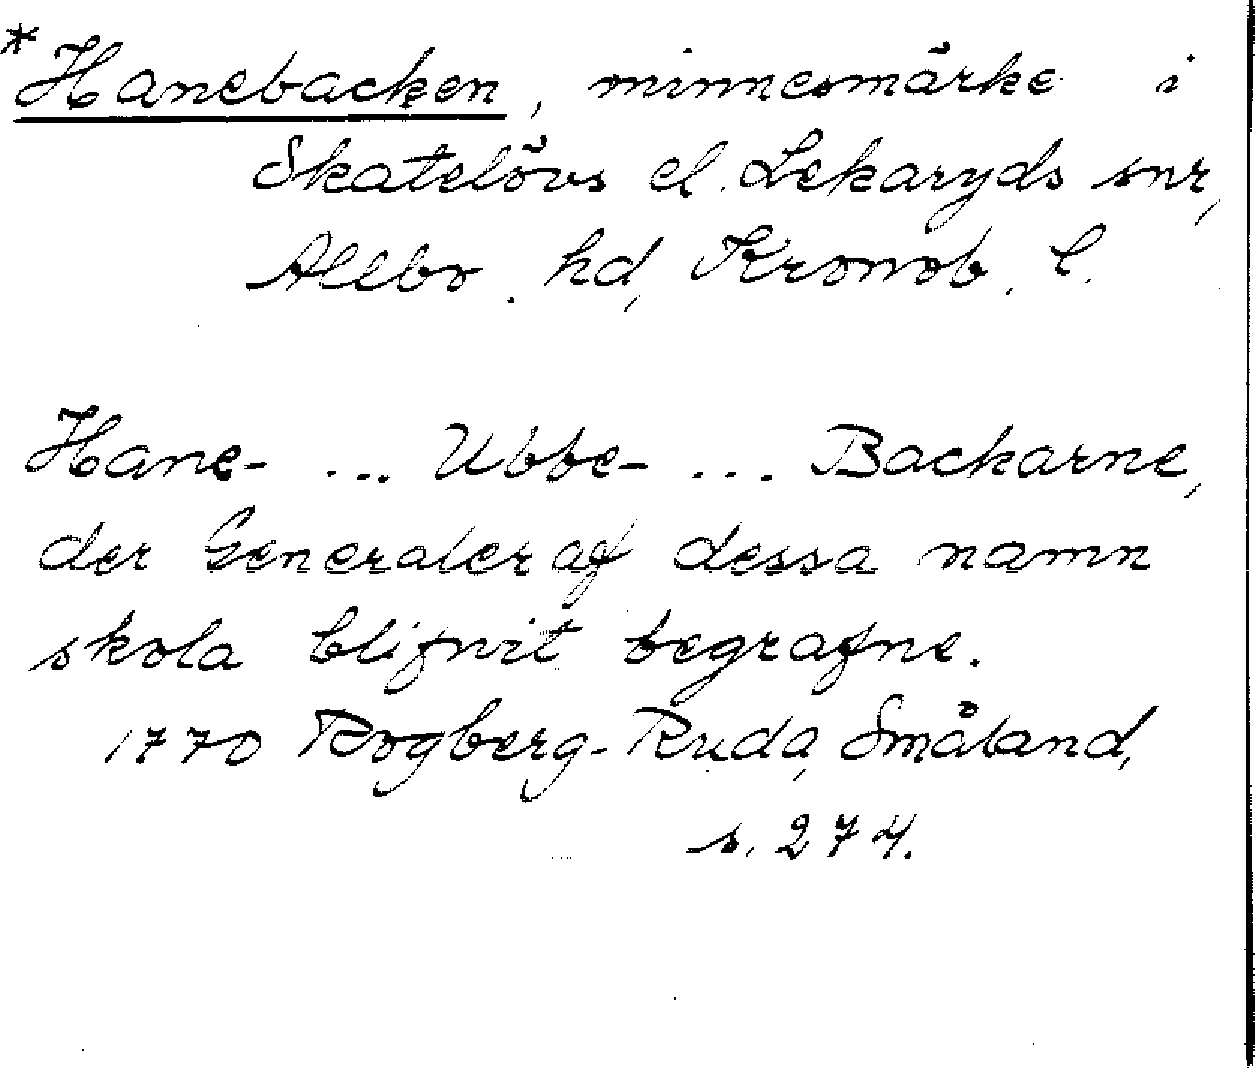 *Hanebacken, minnesmärke i
Skatelövs el. Lekaryds snr,
Allbo. hd, Kronob. l.
Hane- ... Ubbe- ... Backarne,
der Generaler af dessa namn
skola blifwit begrafne.
1770 Rogberg-Ruda, Småland,
s. 274.